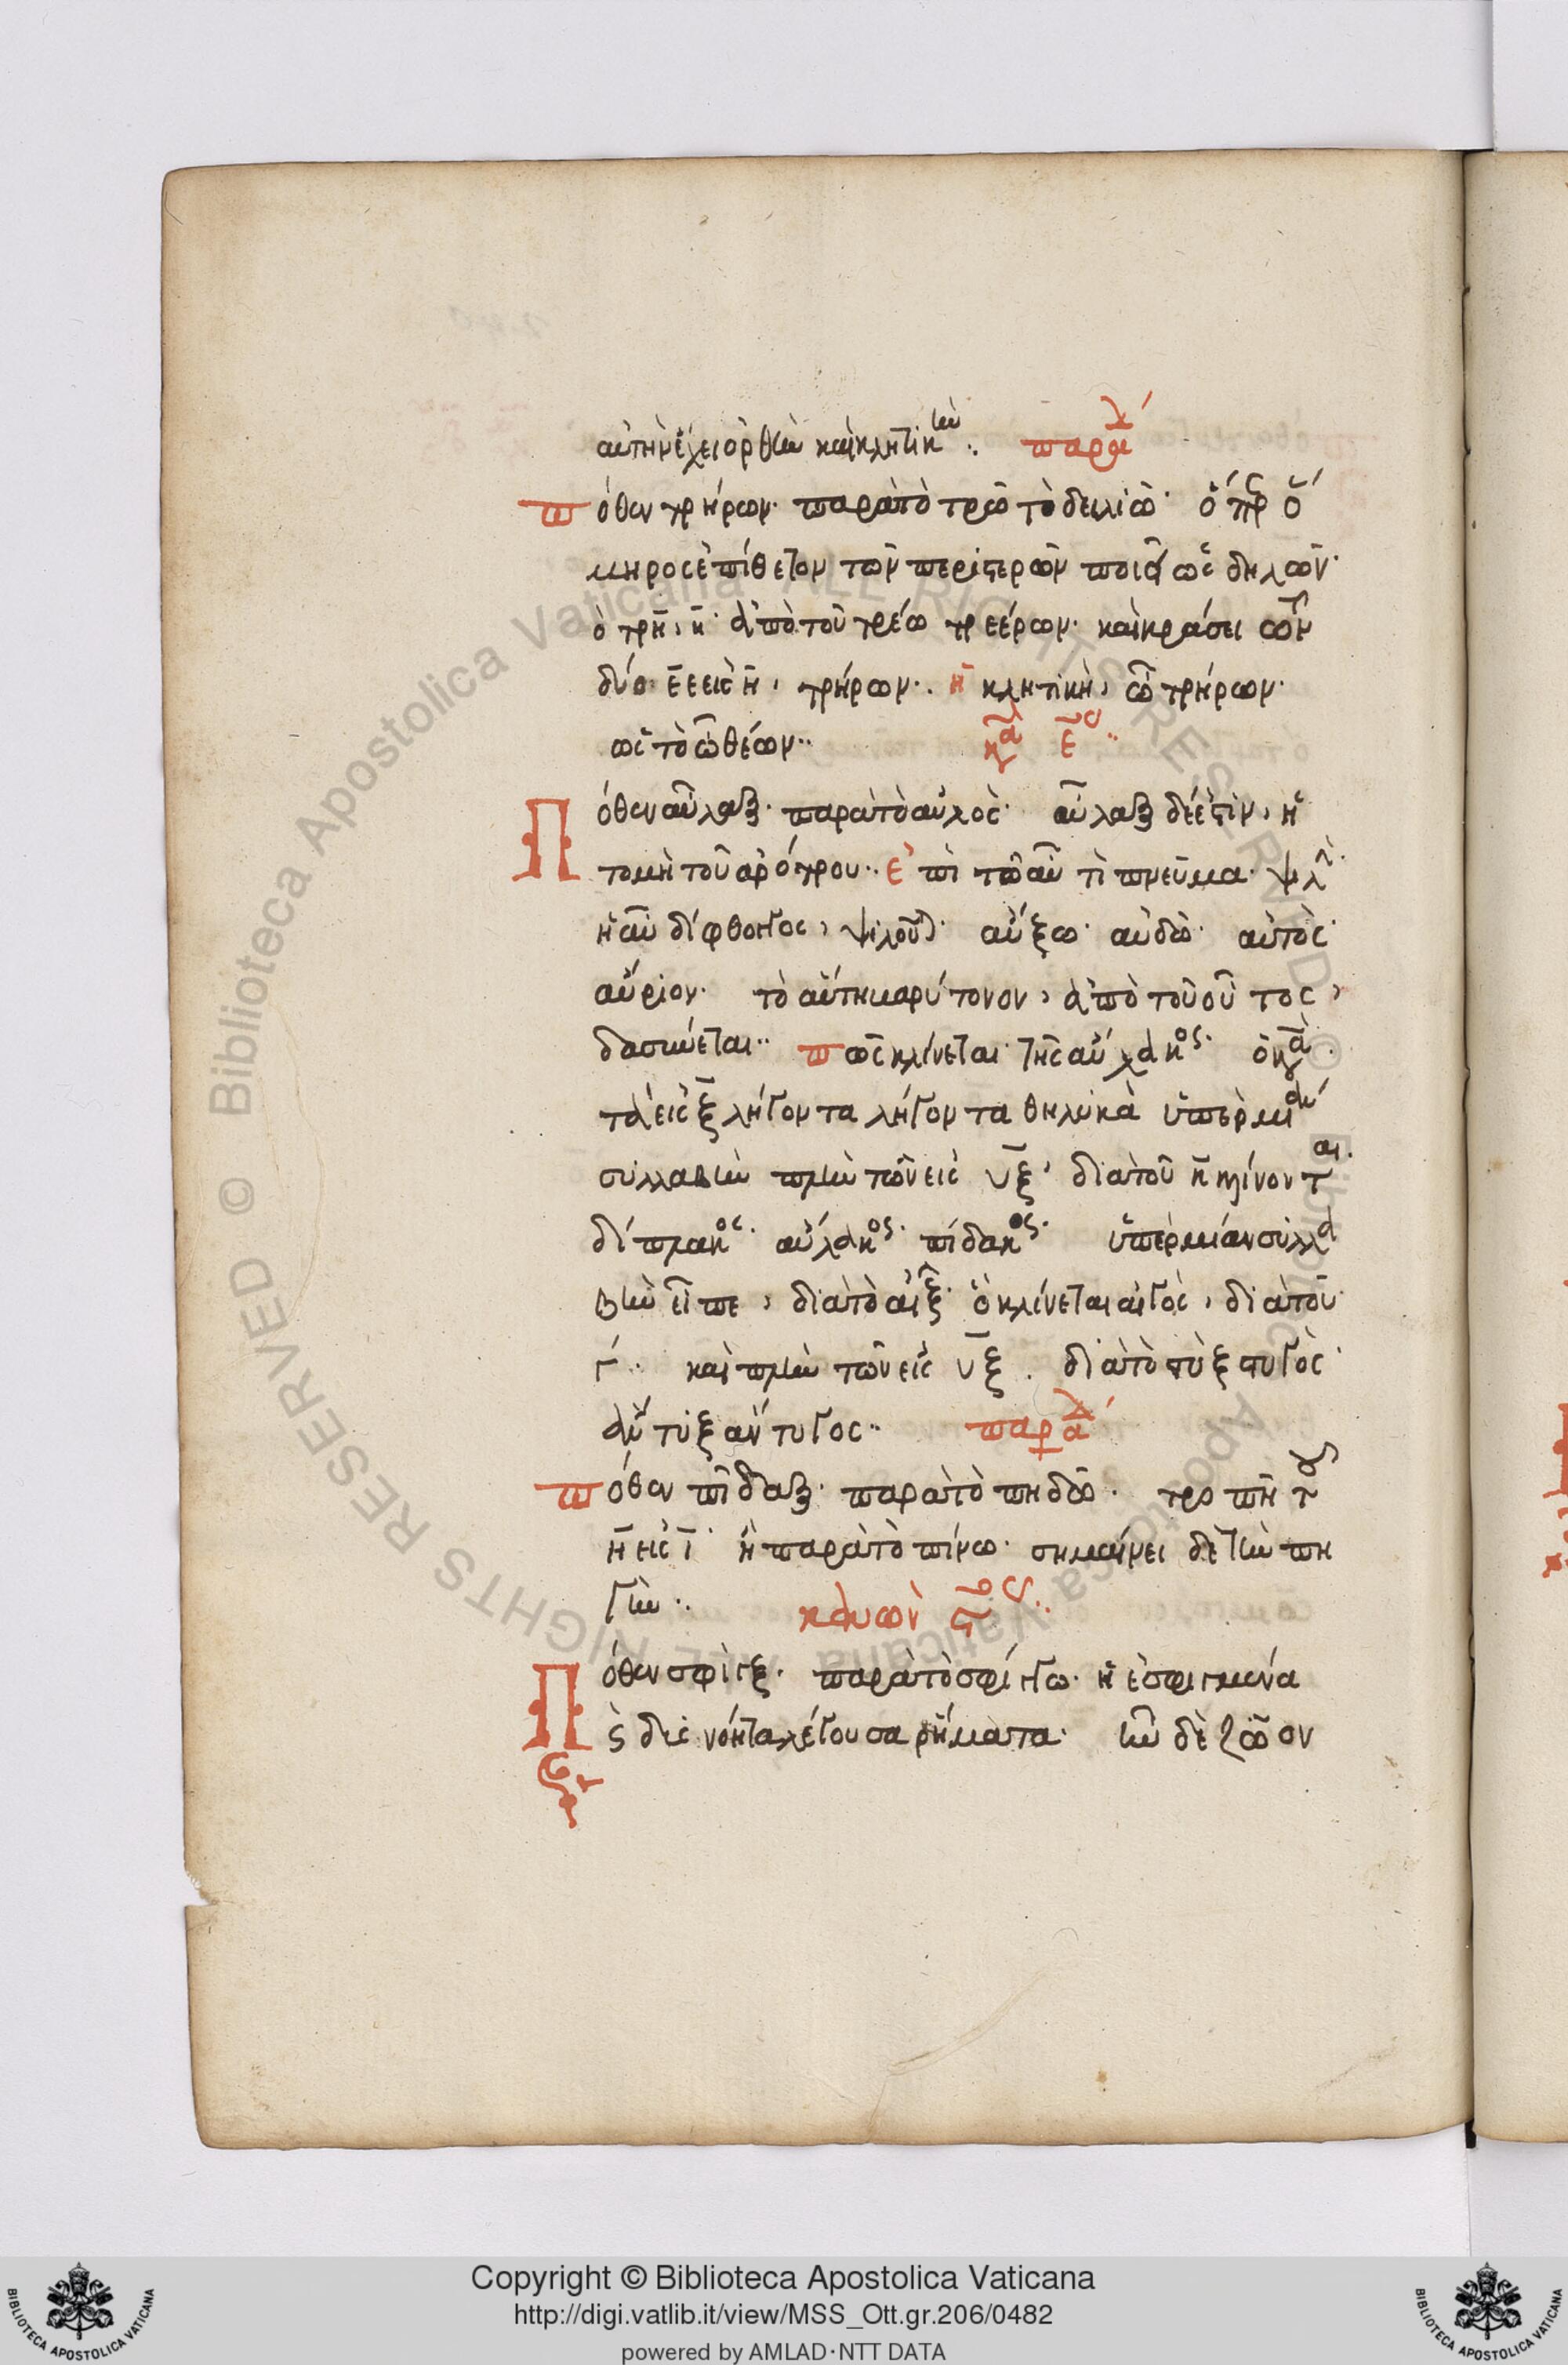 αὐτὴν ἔχει ὀρθὴν καὶ κλητικὴν: παρα
πόθεν τρήρων· παρὰ τὸ τρῶ τὸ δειλιῶ· ὅπερ ὅ
μηρος ἐπίθετον τῶν περιστερῶν ποιεῖ ὡς δηλῶν·
ὁ τρη, η· ἀπὸ τοῦ τρέω τρεέρων· καὶ κράσει τῶν
δύο ε̄ε εἰς η̄, τρήρων·. ἡ κλητικὴ, ὦ τρήρων·
ὡς τὸ ὦ θέων·· κα ε
Πόθεν αὖλαξ· παρὰ τὸ αὐλός· αὖλαξ δέ ἐστιν, ἡ
τομὴ τοῦ ἀρότρου·· ἐπὶ τὸ αυ τί πνεῦμα· ψιλ
ἡ αυ δίφθογγος, ψιλοῦται· αὔξω· αὐδῶ· αὐτός·
αὔριον· τὸ αὕτη βαρύτονον, ἀπὸ τοῦ οὗτος,
δασύνεται·· πῶς κλίνεται τῆς αὔλακος· ὁ κα
τὰ εἰς ξ λήγοντα λήγοντα θηλυκὰ ὑπὲρ μίαν
συλλαβὴν πλὴν τῶν εἰς υξ, διὰ τοῦ κ κλίνονται·
δίπλακος· αὔλακος· πίδακος· ὑπὲρ μίαν συλλα
βὴν εἶπε, διὰ τὸ αἲξ· ὃ κλίνεται αἰγὸς, διὰ τοῦ
γ·· καὶ πλὴν τῶν εἰς υξ. διὰ τὸ στὺξ στυγὸς·
ἄντυξ ἄντυγος·· παρα
πόθεν πίδαξ· παρὰ τὸ πηδῶ· τροπῆ τοῦ
η̄ εἰς ῑ· ἢ παρὰ τὸ πίνω· σημαίνει δὲ τὴν πη
γὴν·· κανων
Πόθεν σφίγξ· παρὰ τὸ σφίγγω· ἡ ἐσφιγμένα
ϛ δυσνόητα λέγουσα ῥήματα· ἦν δὲ ζῶον
Copyright © Biblioteca Apostolica Vaticana
http://digi.vatlib.it/view/MSS_Ott.gr.206/0482
powered by AMLAD·NTT DATA